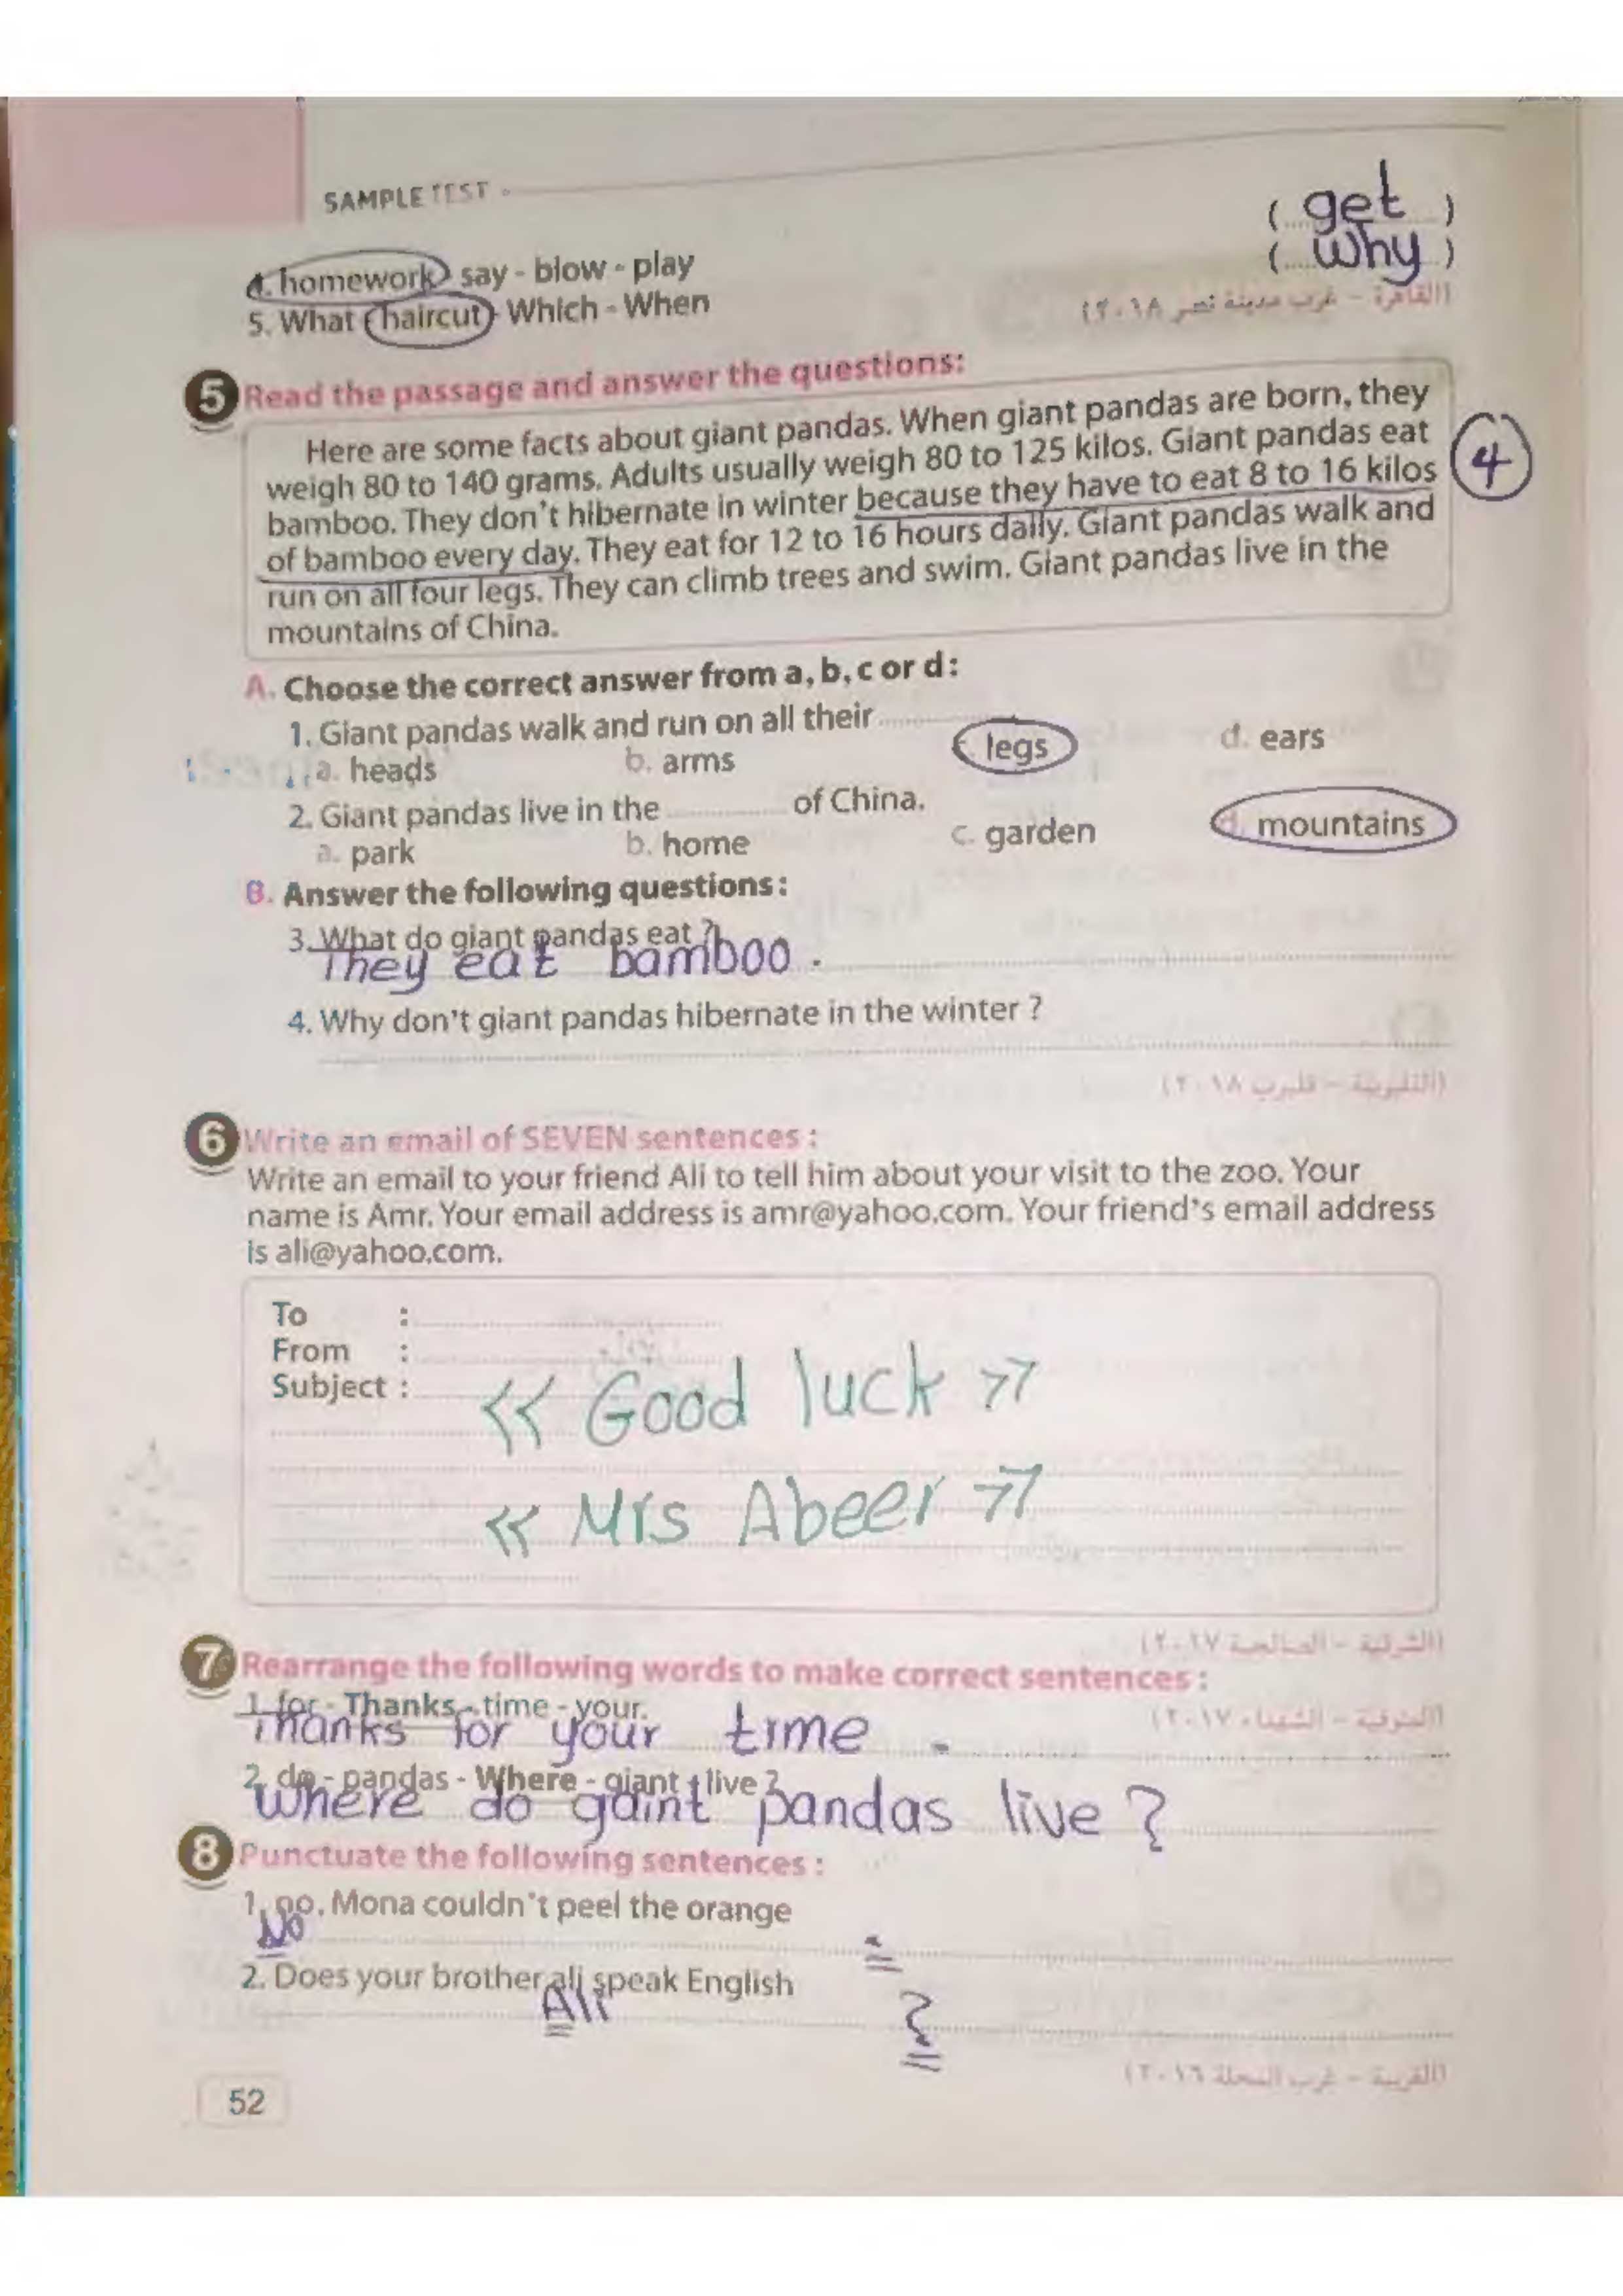 SAMPLE TEST
4. homework - say - blow - play ( get )
5. What - haircut - Which - When ( why )
(القاهرة - غرب مدينة نصر ٢٠١٨)
5 Read the passage and answer the questions:
Here are some facts about giant pandas. When giant pandas are born, they
weigh 80 to 140 grams. Adults usually weigh 80 to 125 kilos. Giant pandas eat
bamboo. They don't hibernate in winter because they have to eat 8 to 16 kilos
of bamboo every day. They eat for 12 to 16 hours daily. Giant pandas walk and
run on all four legs. They can climb trees and swim. Giant pandas live in the
mountains of China.
4
A. Choose the correct answer from a, b, c or d:
1. Giant pandas walk and run on all their ............
a. heads b. arms c. legs d. ears
2. Giant pandas live in the ............ of China.
a. park b. home c. garden d. mountains
B. Answer the following questions:
3. What do giant pandas eat ?
They eat bamboo .
4. Why don't giant pandas hibernate in the winter ?
(القليوبية - قليوب ٢٠١٨)
6 Write an email of SEVEN sentences :
Write an email to your friend Ali to tell him about your visit to the zoo. Your
name is Amr. Your email address is amr@yahoo.com. Your friend's email address
is ali@yahoo.com.
To :
From :
Subject :
<< Good luck >>
<< Mrs Abeer >>
(الشرقية - الصالحية ٢٠١٧)
7 Rearrange the following words to make correct sentences :
1. for - Thanks - time - your.
(المنوفية - الشهداء ٢٠١٧)
Thanks for your time .
2. do - pandas - Where - giant - live ?
Where do gaint pandas live ?
8 Punctuate the following sentences :
1. no, Mona couldn't peel the orange
No .
2. Does your brother ali speak English
Ali ?
(الغربية - غرب المحلة ٢٠١٦)
52